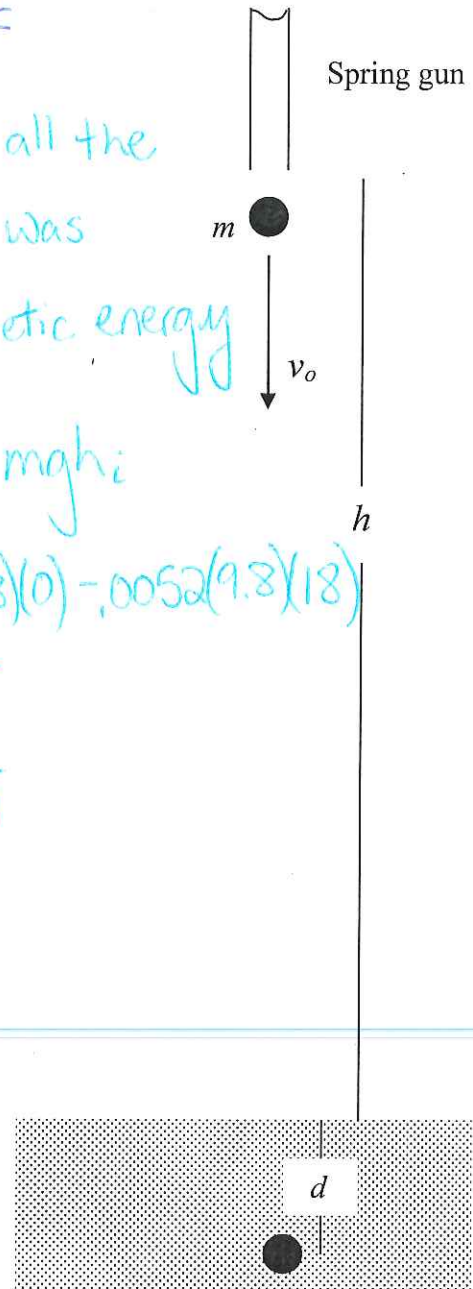 Spring gun
all the
was
m
etic energy
v₀
mghi
h
)(0) - .0052(9.8)(18)
d